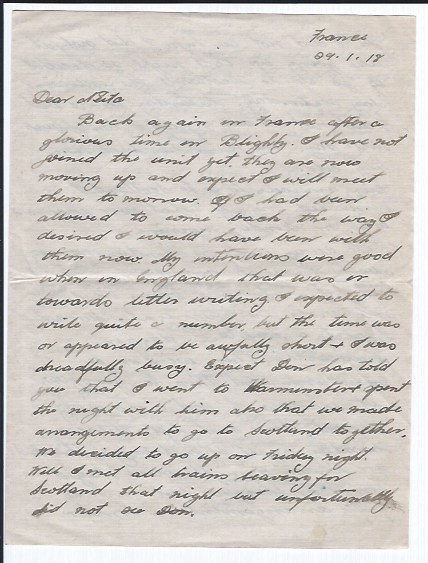 France
29.1.18
Dear Nita
Back again in France after a
glorious time in Blighty. I have not
joined the unit yet. they are now
moving up and expect I will meet
them to morrow. If I had been
allowed to come back the way I
desired I would have been with
them now My intentions were good
when in England that was in
towards letter writing I expected to
write quite a number, but the time was
or appeared to be awfully short & I was
dreadfully busy. Expect Don has told
you that I went to Warminster & spent
the night with him also that we made
arrangements to go to Scotland together.
We decided to go up on Friday night.
Well I met all trains leaving for
Scotland that night but unfortunately
did not see Don.